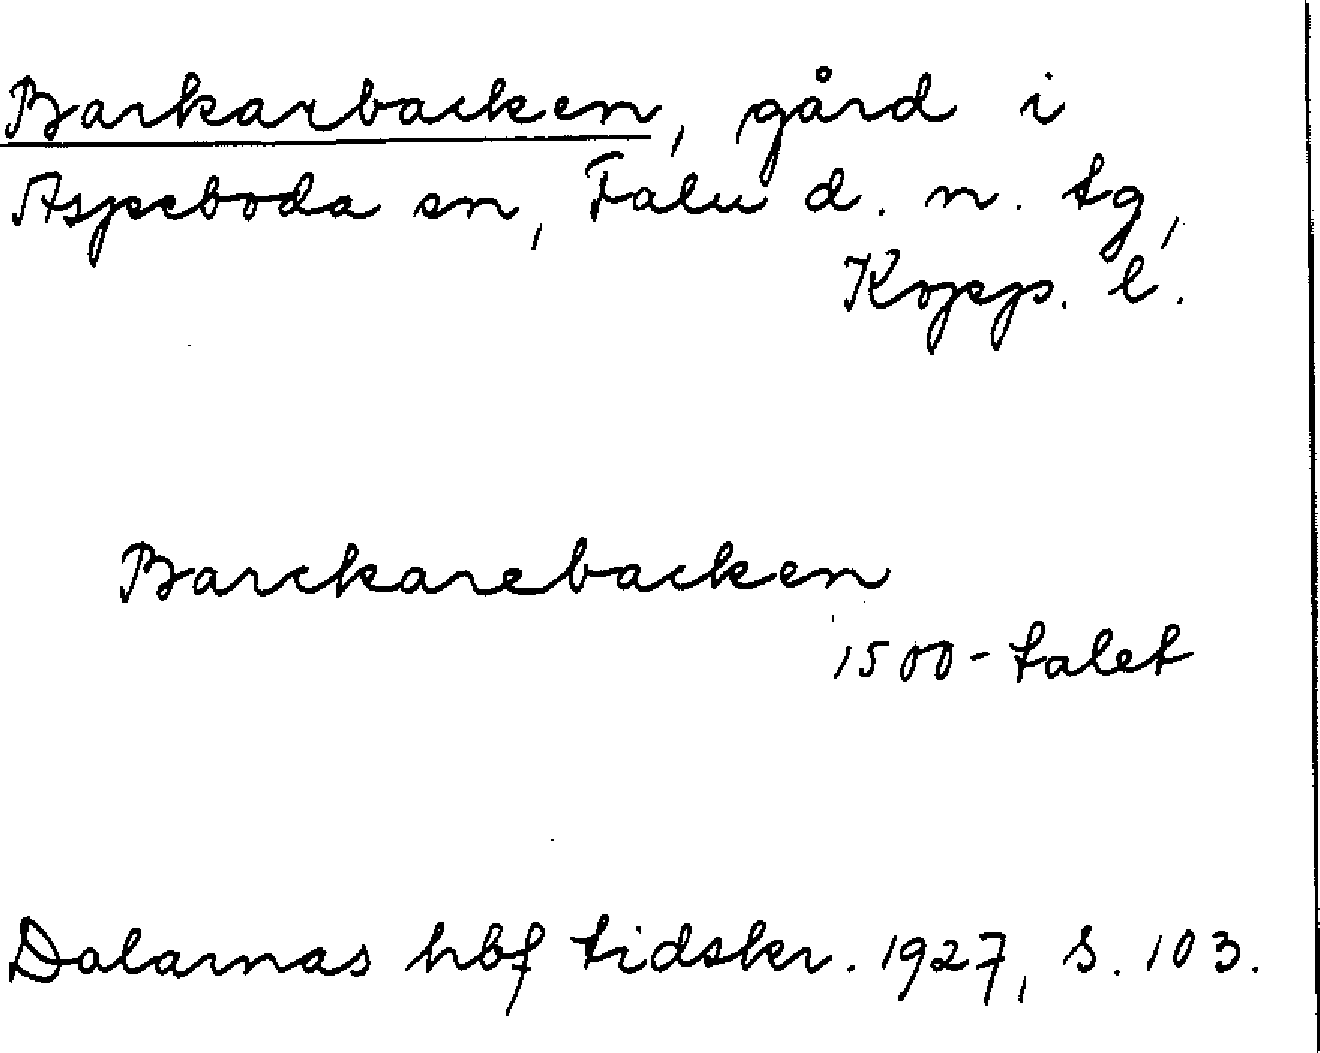 Barkarbacken, gård i
Aspeboda sn, Falu d. n. tg,
Kopp. l.
Barckarebacken
1500-talet
Dalarnas hbf tidskr. 1927, s. 103.